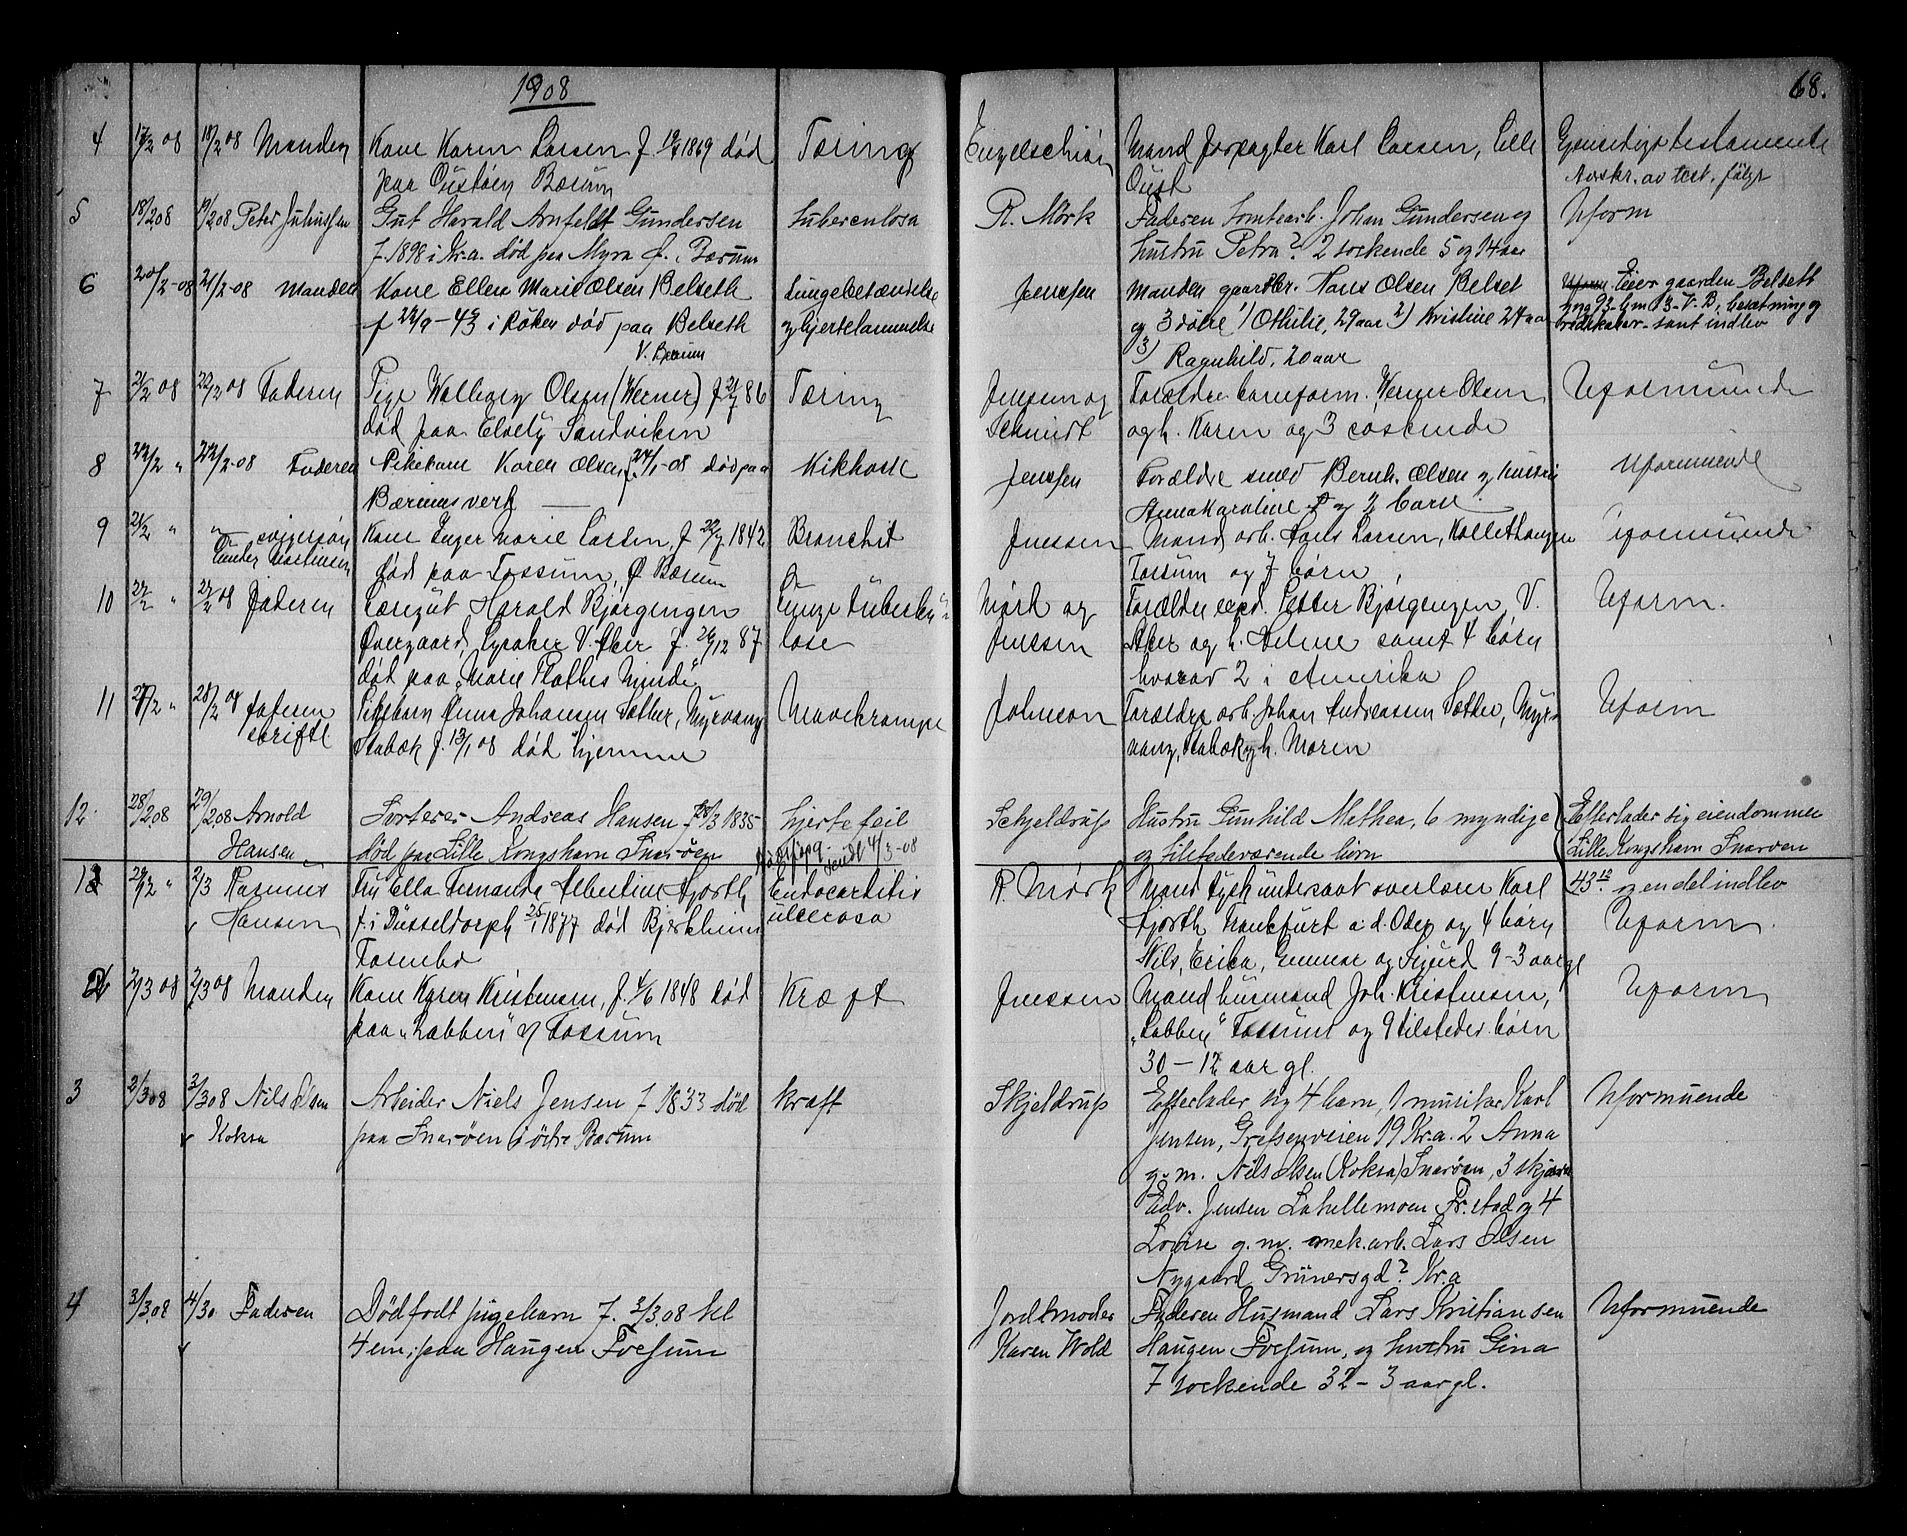 1908
68.
4 17/2 08 18/2 08 Manden Kone Karen Larsen f. 19/ 1869 død Tæring Engelschiøn Mand forpagter Karl Larsen, Lille Gjensidigt testamente
paa Oustøen Bærum Oust Avskr. av test. følgt
5 18/2 08 19/2 08 Peter Juliussen Gut Harald Arnfeldt Gundersen tuberculosa R. Mørk Faderen Tomtearb. Johan Gundersen og Uform
f. 1898 i Kr.a. død paa Myra Ø. Bærum hustru Petra? 2 søskende 5 og 14 aar
6 20/2-08 21/2-08 Manden Kone Ellen Marie Olsen Belseth Lungebetændelse Jenssen Manden gaardbr. Hans Olsen Belset Uform Eier gaarden Belseth
f 22/9-43 i Røken død paa Belseth og hjertelammelse og 3 døtre 1) Othilie, 29 aar 2) Kristine 24 aar g no 93 b no 3 V. B, besætning og
V. Bærum 3) Ragnhild, 20 aar redskaber samt indbo
7 21/2 08 22/2 08 Faderen Pige Walborg Olsen (Werner) f 21/7 86 Tæring Jenssen og Forældre baneform. Werner Olsen Uformuende
død paa Elvely Sandviken Schmidt og h. Karen og 3 søskende
8 22/2 " 22/2-08 Faderen Pikebarn Karen Olsen f. 24/1-08 død paa Kikhoste Jenssen Forældre smed Bernh. Olsen og hustru Uformuende
Bærumsverk Anna Karoline f og 2 barn
9 21/2 " " svigersøn Kone Inger Marie Larsen, f 22/7 1842 Bronchit Jenssen Mand arb. Hans Larsen, Kollethaugen Uformuende
Gunder Martinsen død paa Fossum, Ø Bærum Fossum og 7 børn
10 27/2 " 27/2 08 Faderen Kongut Harald Bjørgengen Lunge tuberku Mørk og Forældre exp. Petter Bjørgengen, V. Uform.
Overgaard, Lysaker V. Aker f. 26/12 87 lose Jenssen Aker og h. Helene samt 4 børn
død paa „Marie Plathes Minde" hvorav 2 i Amerika
11 27/2 " 28/2 08 faderen Pikebarn Anna Johansen Sæther, Myrvang Mavekrampe Johnson Forældre arb. Johan Andreassen Sæther, Myr- Uform
skriftl Stabæk f. 13/1 08 død hjemme vang, Stabæk og h. Maren
12. 28/2 08 29/2 08 Arnold Sorterer Andreas Hansen f 28/3 1835 hjertefeil Schjeldrup Hustru Gunhild Mathea, 6 myndige Efterlader sig eiendommen
Hansen død paa Lille Kongshavn Snarøen sendt 4/3-08 og tilstedeværende børn Lille Kongshavn Snarøen
13 29/2 " 2/3 Rasmus Fru Ella Fernanda Albertine Hjorth Endocarditis R. Mørk Mand tysk undersaat overlærer Karl 43 12 og en del indbo
Hansen f. i Düsseldorph 25/1 1877 død Bjerkheim ulcerosa Hjorth Frankfurt a. d. Oder og 4 børn Uform.
Fornebo Nils, Erika, Gunnar og Sigurd 9-3 aar gl
2 2/3 08 2/3 08 Manden Kone Karen Kristensen, f. 4/6 1848 død Kræft Jenssen Mand husmand Joh. Kristensen, Uform
paa „Labben" v/ Fossum „Labben" Fossum og 9 tilsteder. børn
30 - 12 aar gl.
3 2/3 08 3/3 08 Nils Olsen Arbeider Niels Jensen f 1833 død kræft Skjeldrup Efterlader sig 4 barn, 1 musiker Karl Uformuende
Koksa paa Snarøen i østre Bærum Jensen, Grefsenveien 19 Kr.a. 2 Anna
g. m. Nils Olsen (Koksa) Snarøen, 3
Edv. Jensen Labellemoen Fr. stad og 4
Lovise g. m. mek. arb. Lars Olsen
Nygaard Grünersgd? Kr.a
4 3/3 08 4/30 Faderen Dødfødt pigebarn f. 3/3 08 kl Jordmoder Faderen Husmand Lars Kristiansen Uformuende
4 em; paa Haugen Fossum Karen Wold Haugen Fossum, og hustru Gina
7 søskende 32 - 3 aar gl.